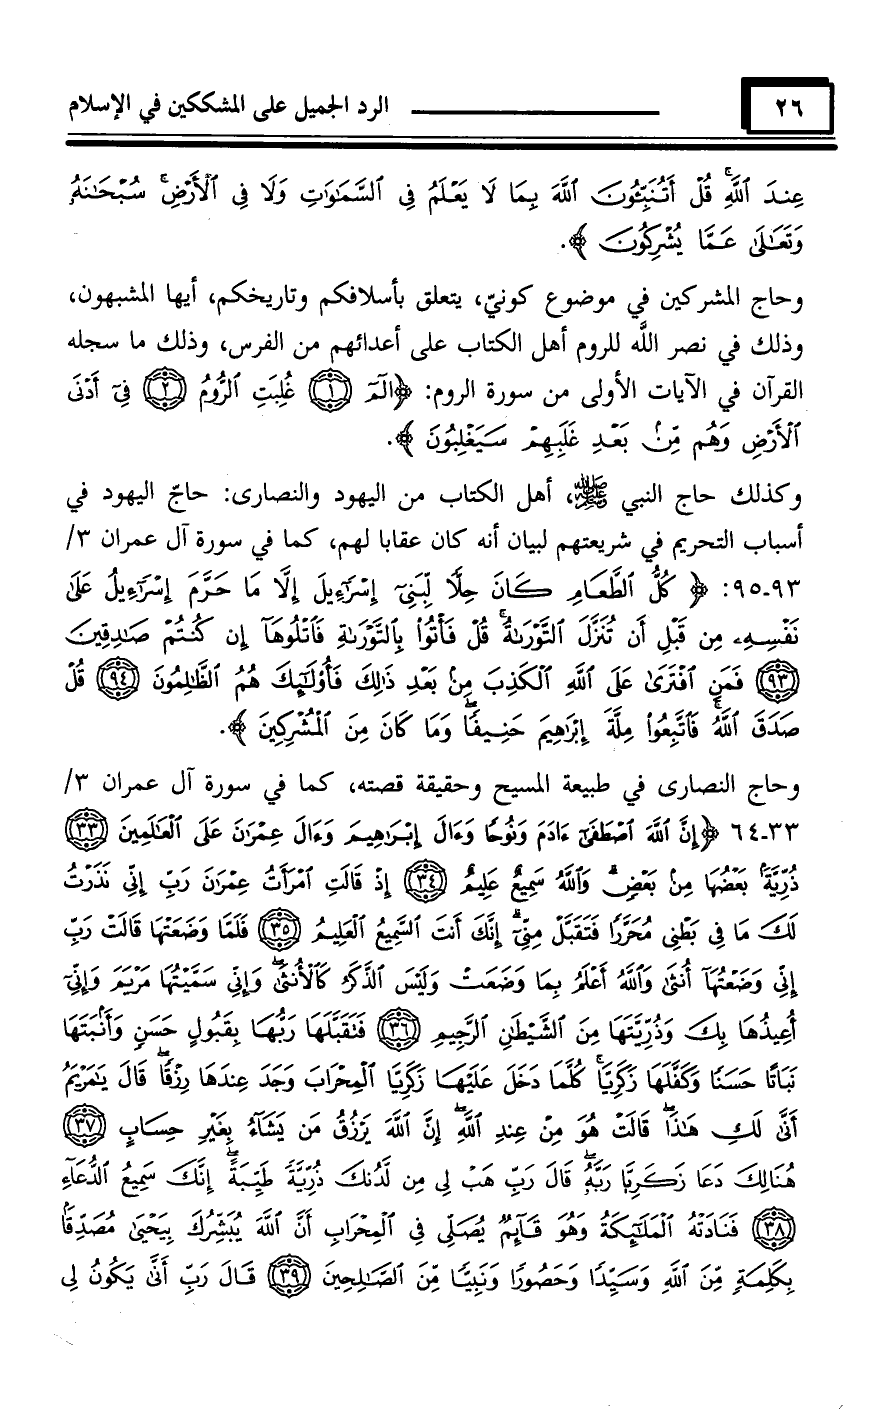 ٢٦ الرد الجميل على المشككين في الإسلام
عِندَ ٱللَّهِۚ قُلْ أَتُنَبِّـُٔونَ ٱللَّهَ بِمَا لَا يَعْلَمُ فِى ٱلسَّمَـٰوَٰتِ وَلَا فِى ٱلْأَرْضِۚ سُبْحَـٰنَهُۥ
وَتَعَـٰلَىٰ عَمَّا يُشْرِكُونَ ﴾.
وحاج المشركين في موضوع كونيّ، يتعلق بأسلافكم وتاريخكم، أيها المشبهون،
وذلك في نصر اللَّه للروم أهل الكتاب على أعدائهم من الفرس، وذلك ما سجله
القرآن في الآيات الأولى من سورة الروم: ﴿الٓمٓ ۝١ غُلِبَتِ ٱلرُّومُ ۝٢ فِىٓ أَدْنَى
ٱلْأَرْضِ وَهُم مِّنۢ بَعْدِ غَلَبِهِمْ سَيَغْلِبُونَ ﴾.
وكذلك حاج النبي ﷺ، أهل الكتاب من اليهود والنصارى: حاجّ اليهود في
أسباب التحريم في شريعتهم لبيان أنه كان عقابا لهم، كما في سورة آل عمران ٣/
٩٣-٩٥: ﴿ كُلُّ ٱلطَّعَامِ كَانَ حِلًّا لِّبَنِىٓ إِسْرَٰٓءِيلَ إِلَّا مَا حَرَّمَ إِسْرَٰٓءِيلُ عَلَىٰ
نَفْسِهِۦ مِن قَبْلِ أَن تُنَزَّلَ ٱلتَّوْرَىٰةُۗ قُلْ فَأْتُوا۟ بِٱلتَّوْرَىٰةِ فَٱتْلُوهَآ إِن كُنتُمْ صَـٰدِقِينَ
۝٩٣ فَمَنِ ٱفْتَرَىٰ عَلَى ٱللَّهِ ٱلْكَذِبَ مِنۢ بَعْدِ ذَٰلِكَ فَأُو۟لَـٰٓئِكَ هُمُ ٱلظَّـٰلِمُونَ ۝٩٤ قُلْ
صَدَقَ ٱللَّهُۗ فَٱتَّبِعُوا۟ مِلَّةَ إِبْرَٰهِيمَ حَنِيفًاۖ وَمَا كَانَ مِنَ ٱلْمُشْرِكِينَ ﴾.
وحاج النصارى في طبيعة المسيح وحقيقة قصته، كما في سورة آل عمران ٣/
٣٣-٦٤ ﴿إِنَّ ٱللَّهَ ٱصْطَفَىٰٓ ءَادَمَ وَنُوحًا وَءَالَ إِبْرَٰهِيمَ وَءَالَ عِمْرَٰنَ عَلَى ٱلْعَـٰلَمِينَ ۝٣٣
ذُرِّيَّةًۢ بَعْضُهَا مِنۢ بَعْضٍۗ وَٱللَّهُ سَمِيعٌ عَلِيمٌ ۝٣٤ إِذْ قَالَتِ ٱمْرَأَتُ عِمْرَٰنَ رَبِّ إِنِّى نَذَرْتُ
لَكَ مَا فِى بَطْنِى مُحَرَّرًا فَتَقَبَّلْ مِنِّىٓۖ إِنَّكَ أَنتَ ٱلسَّمِيعُ ٱلْعَلِيمُ ۝٣٥ فَلَمَّا وَضَعَتْهَا قَالَتْ رَبِّ
إِنِّى وَضَعْتُهَآ أُنثَىٰ وَٱللَّهُ أَعْلَمُ بِمَا وَضَعَتْ وَلَيْسَ ٱلذَّكَرُ كَٱلْأُنثَىٰۖ وَإِنِّى سَمَّيْتُهَا مَرْيَمَ وَإِنِّىٓ
أُعِيذُهَا بِكَ وَذُرِّيَّتَهَا مِنَ ٱلشَّيْطَـٰنِ ٱلرَّجِيمِ ۝٣٦ فَتَقَبَّلَهَا رَبُّهَا بِقَبُولٍ حَسَنٍ وَأَنۢبَتَهَا
نَبَاتًا حَسَنًا وَكَفَّلَهَا زَكَرِيَّاۖ كُلَّمَا دَخَلَ عَلَيْهَا زَكَرِيَّا ٱلْمِحْرَابَ وَجَدَ عِندَهَا رِزْقًاۖ قَالَ يَـٰمَرْيَمُ
أَنَّىٰ لَكِ هَـٰذَاۖ قَالَتْ هُوَ مِنْ عِندِ ٱللَّهِۖ إِنَّ ٱللَّهَ يَرْزُقُ مَن يَشَآءُ بِغَيْرِ حِسَابٍ ۝٣٧
هُنَالِكَ دَعَا زَكَرِيَّا رَبَّهُۥۖ قَالَ رَبِّ هَبْ لِى مِن لَّدُنكَ ذُرِّيَّةً طَيِّبَةًۖ إِنَّكَ سَمِيعُ ٱلدُّعَآءِ
۝٣٨ فَنَادَتْهُ ٱلْمَلَـٰٓئِكَةُ وَهُوَ قَآئِمٌ يُصَلِّى فِى ٱلْمِحْرَابِ أَنَّ ٱللَّهَ يُبَشِّرُكَ بِيَحْيَىٰ مُصَدِّقًۢا
بِكَلِمَةٍ مِّنَ ٱللَّهِ وَسَيِّدًا وَحَصُورًا وَنَبِيًّا مِّنَ ٱلصَّـٰلِحِينَ ۝٣٩ قَالَ رَبِّ أَنَّىٰ يَكُونُ لِى